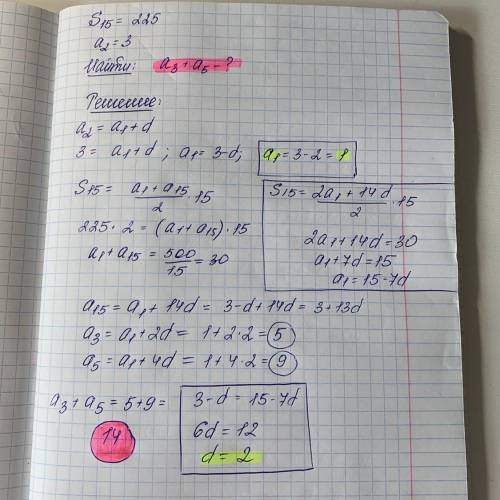 S₁₅ = 225
a₂ = 3
Найти: a₃ + a₅ - ?
Решение:
a₂ = a₁ + d
3 = a₁ + d ; a₁ = 3-d; a₁ = 3-2 = 1
S₁₅ = (a₁ + a₁₅)/2 · 15
225 · 2 = (a₁ + a₁₅) · 15
a₁ + a₁₅ = 500/15 = 30
S₁₅ = (2a₁ + 14d)/2 · 15
2a₁ + 14d = 30
a₁ + 7d = 15
a₁ = 15-7d
a₁₅ = a₁ + 14d = 3-d + 14d = 3 + 13d
a₃ = a₁ + 2d = 1 + 2·2 = 5
a₅ = a₁ + 4d = 1 + 4·2 = 9
a₃ + a₅ = 5 + 9 =
14
3-d = 15-7d
6d = 12
d = 2